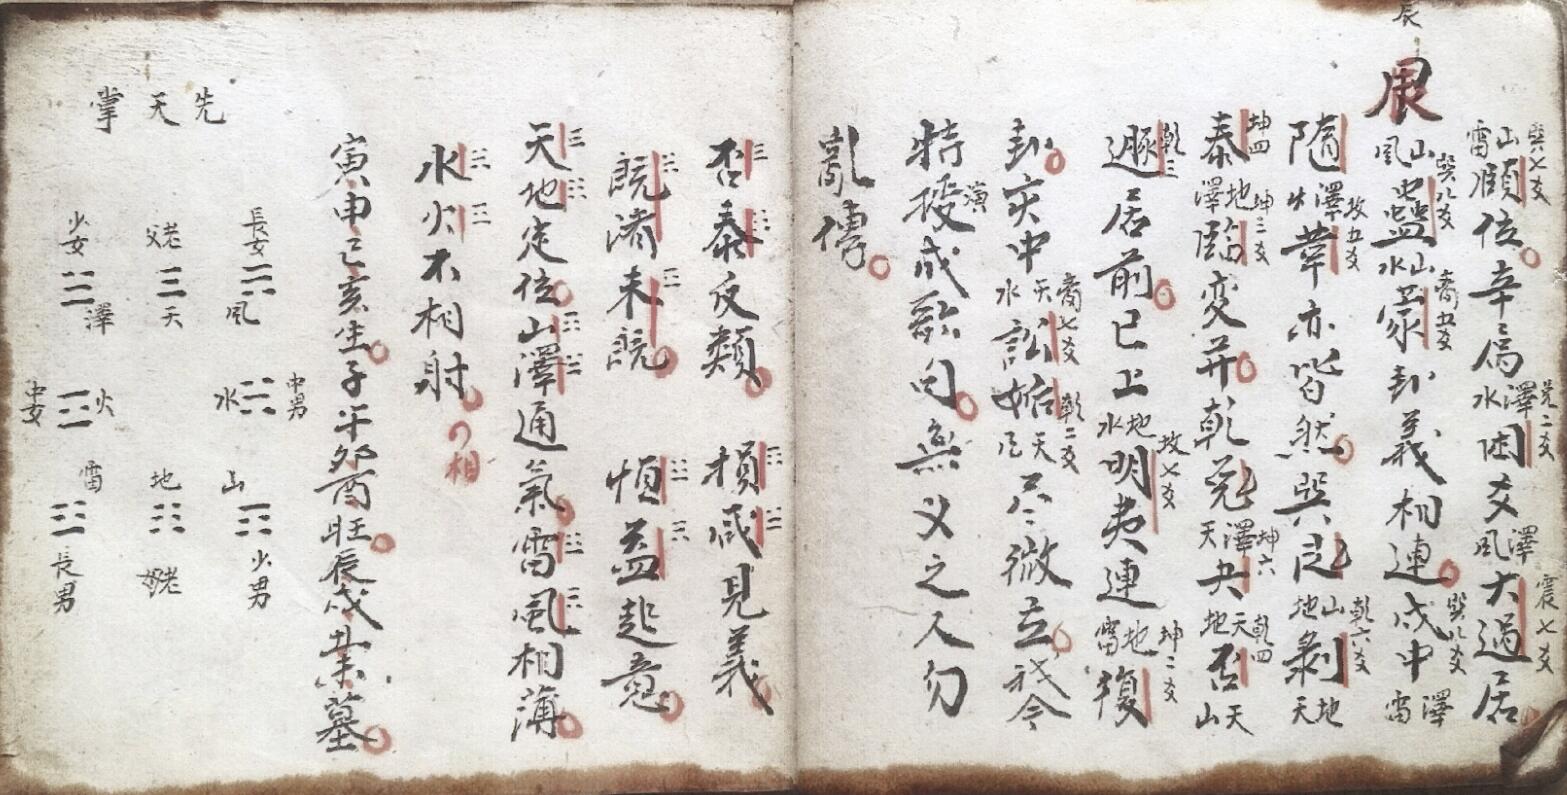 辰
山雷頤位辛居水澤困爻風澤大過居
辰風山蠱水山蒙卦義相連戌中雷澤
隨火澤革亦皆然巽艮地山剝天地
泰澤地臨變并乾兌天澤夬地天否山天
遯居前已上水地明夷連雷地復
卦亥中水天訟姤天尽微立我今
特授演成歌句無义之人勿
亂傳
否泰反類損咸見義
既濟未既恒益起意
天地定位山澤通氣雷風相薄
水火不相射
相
寅申巳亥生子午卯酉旺辰戌丑未墓
先天掌
長女 風
老父 天
少女 澤
中男 水
火 中女
山 少男
地 老母
雷 長男
巽七爻
巽八爻
兌二爻
震七爻
巽八爻
乾六爻
坤四
坤三爻
坤六
乾四
乾三
坤二爻
乾二爻